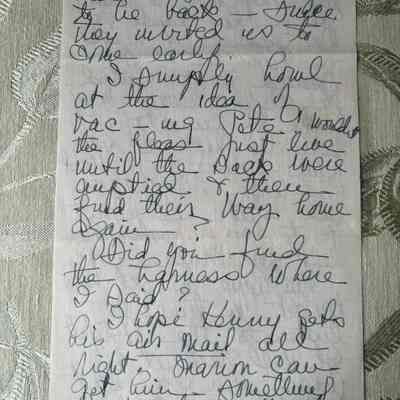 to the back — Sugee
they invited us to
come early.
I simply howl
at the idea of
vac-ing Pete. wouldnt
the fleas just live
until the back were
emptied & then
find their way home
again?
Did you find
the harness where
I said?
I hope Henry gets
his air mail all
right. Marion can
get him something